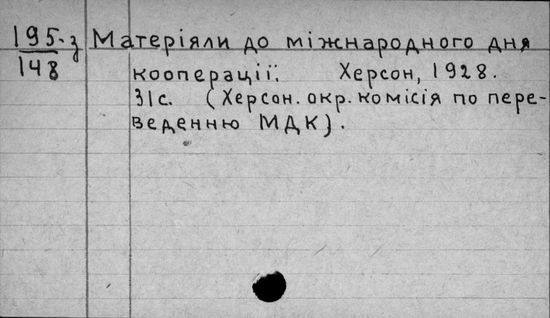 195-з Матеріяли до міжнародного дня
148 кооперації. Херсон, 1928.
31с. (Херсон. окр. комісія по пере-
веденню МДК).